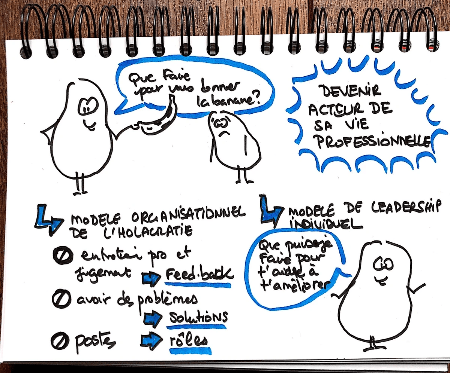 Que faire
pour vous donner
la banane?
DEVENIR
ACTEUR DE
SA VIE
PROFESSIONNELLE
MODELE ORGANISATIONNEL
DE L'HOLACRATIE
entretien pro et
jugement Feed.back
avoir des problèmes
Solutions
postes rôles
MODELE DE LEADERSHIP
INDIVIDUEL
Que puis-je
faire pour
t'aider à
t'améliorer